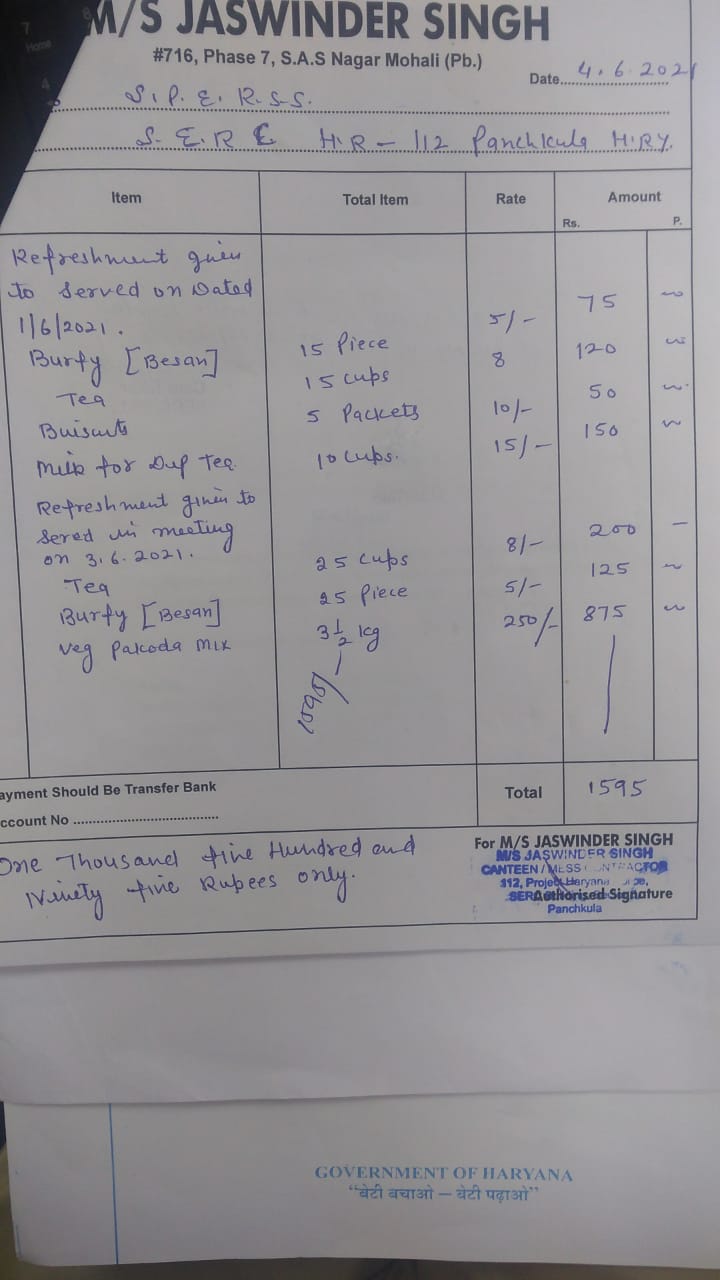 M/S JASWINDER SINGH
#716, Phase 7, S.A.S Nagar Mohali (Pb.)
Date 4.6.2021
S.P.E.R.S.S.
S.E.R.C H.R - 112 Panchkula H.RY.
Item Total Item Rate Amount
Rs. P.
Refreshment given
to Served on Dated
1/6/2021.
Burfy [Besan] 15 Piece 5/- 75
Tea 15 cups 8 120
Buisuits 5 Packets 10/- 50
Milk for Dup Tea 10 cups. 15/- 150
Refreshment given to
Sered in meeting
on 3.6.2021.
Tea 25 cups 8/- 200 –
Burfy [Besan] 25 Piece 5/- 125
Veg Pakoda Mix 3½ kg 250/- 875
1595/-
ayment Should Be Transfer Bank
ccount No
Total 1595
One Thousand five Hundred and
Ninety five Rupees only.
For M/S JASWINDER SINGH
M/S JASWINDER SINGH
CANTEEN / MESS CONTRACTOR
Authorised Signature
Panchkula
GOVERNMENT OF HARYANA
“बेटी बचाओ – बेटी पढ़ाओ”